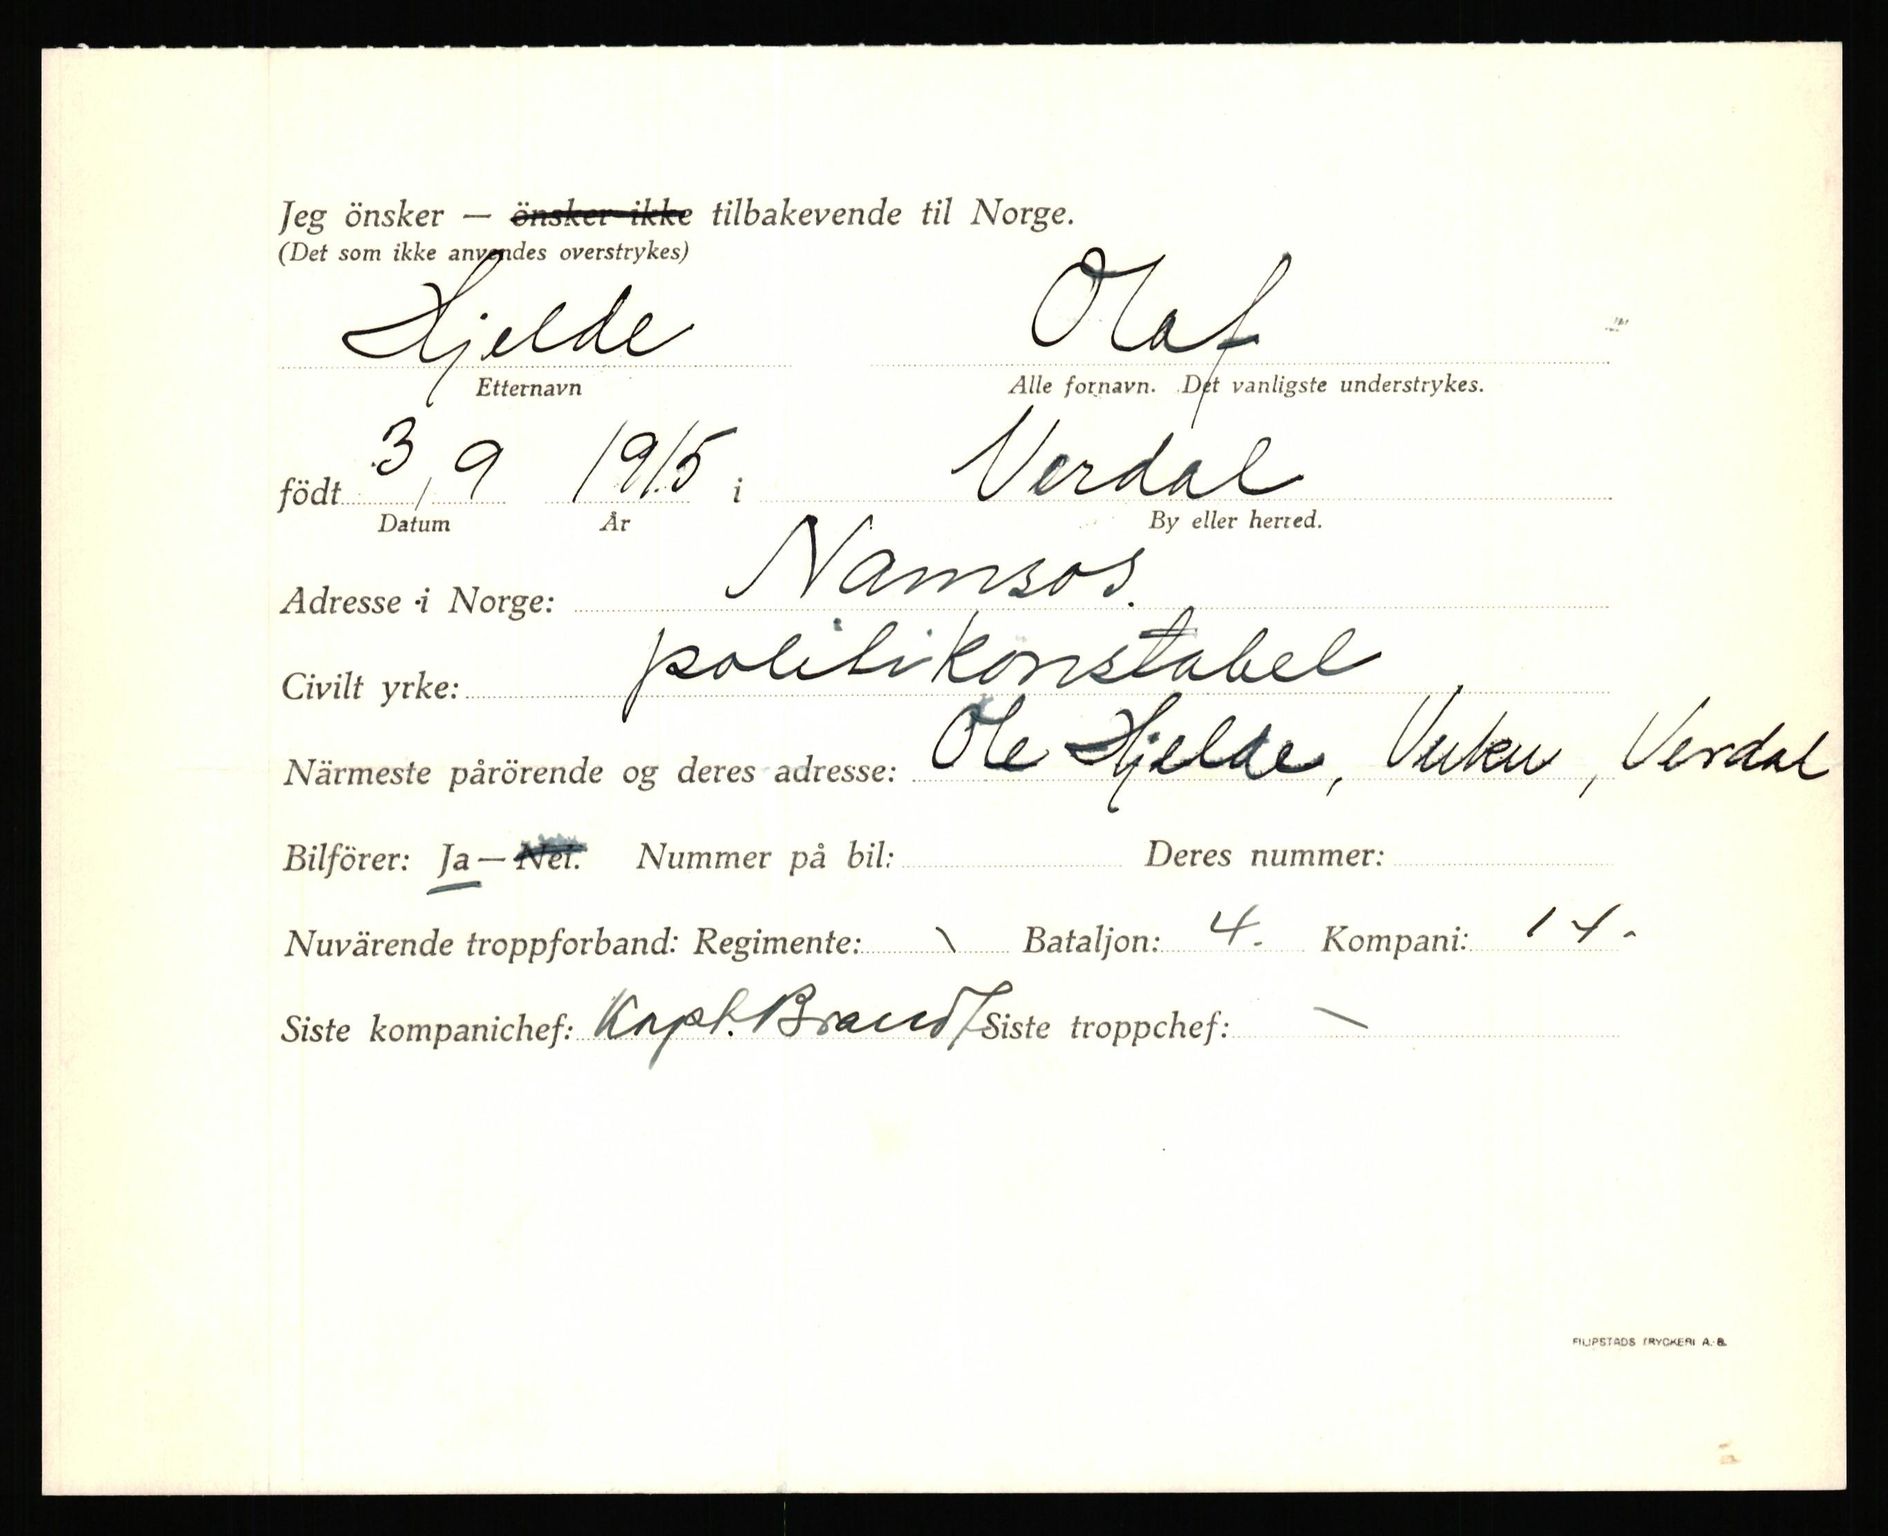 Jeg önsker — önsker ikke tilbakevende til Norge.
(Det som ikke anvendes overstrykes)
Hjelde Olaf
Etternavn Alle fornavn. Det vanligste understrykes.
födt 3/9 1915 i Verdal
Datum År By eller herred.
Adresse i Norge: Namsos.
Civilt yrke: politikonstabel
Närmeste pårörende og deres adresse: Ole Hjelde, Vuku, Verdal
Bilförer: Ja — Nei. Nummer på bil: Deres nummer:
Nuvärende troppforband: Regimente: \ Bataljon: 4. Kompani: 14.
Siste kompanichef: Kapt. Brandt Siste troppchef: \
FILIPSTADS TRYCKERI A.-B.